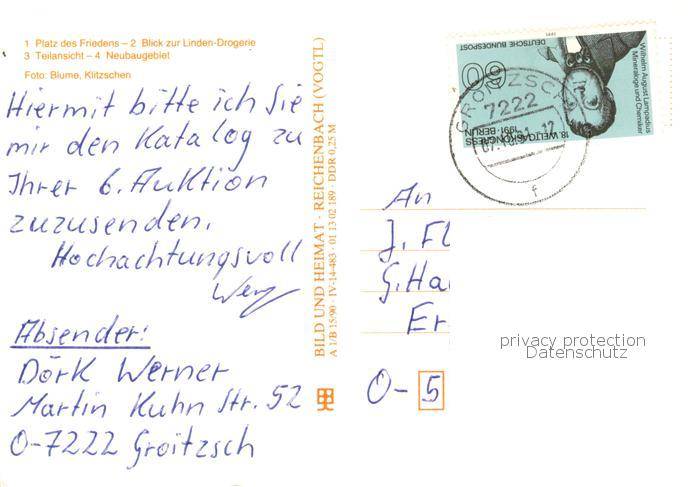 1 Platz des Friedens – 2 Blick zur Linden-Drogerie
3 Teilansicht – 4 Neubaugebiet
Foto: Blume, Klitzschen
Hiermit bitte ich Sie
mir den Katalog zu
Ihrer 6. Auktion
zuzusenden.
Hochachtungsvoll
Absender:
Dörk Werner
Martin Kuhn Str. 52
O-7222 Groitzsch
BILD UND HEIMAT · REICHENBACH (VOGTL)
A 1/B 15/90 · IV-14-483 · 01 13 02 189 · DDR 0,25 M
DEUTSCHE BUNDESPOST
1991
60
Wilhelm August Lampadius
Mineraloge und Chemiker
18. WELTGASKONGRESS
BERLIN · 1991
GROITZSCH
7222
f
An
J. Fl
G. Ha
Er
O-5
privacy protection
Datenschutz